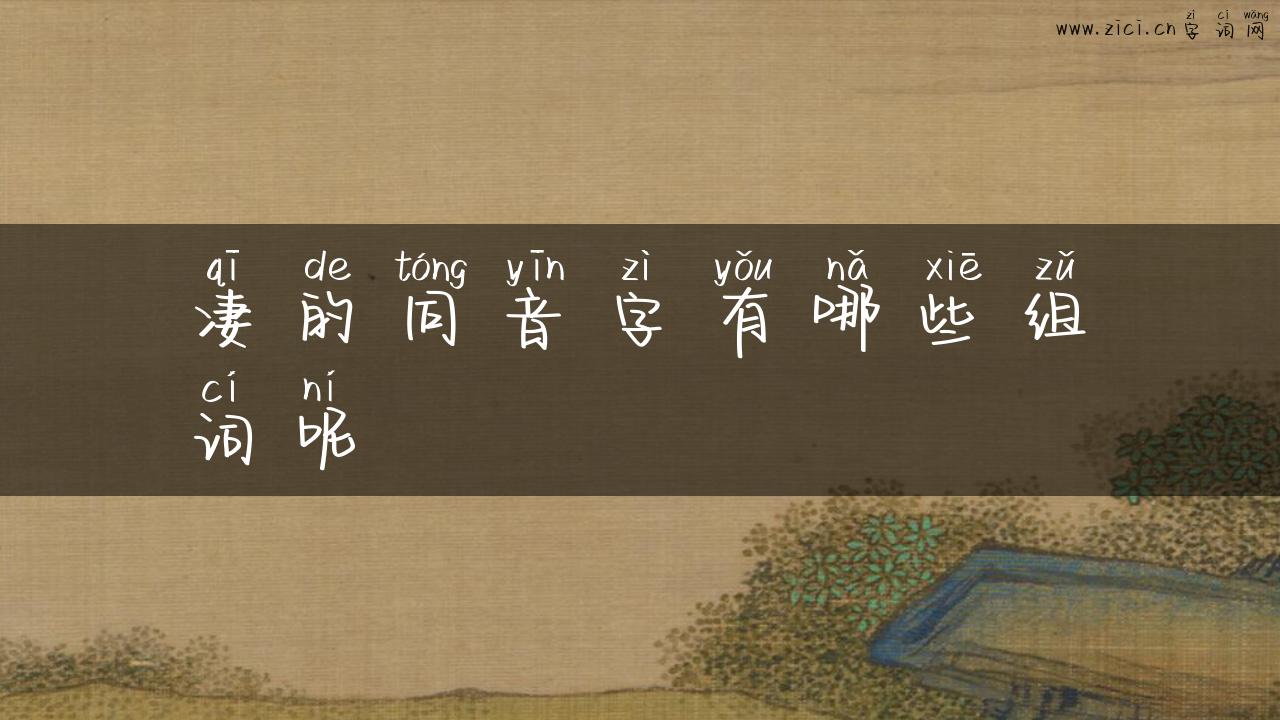 zì cí wǎng
www.zici.cn 字 词 网
qī de tóng yīn zì yǒu nǎ xiē zǔ
凄 的 同 音 字 有 哪 些 组
cí ní
词 呢